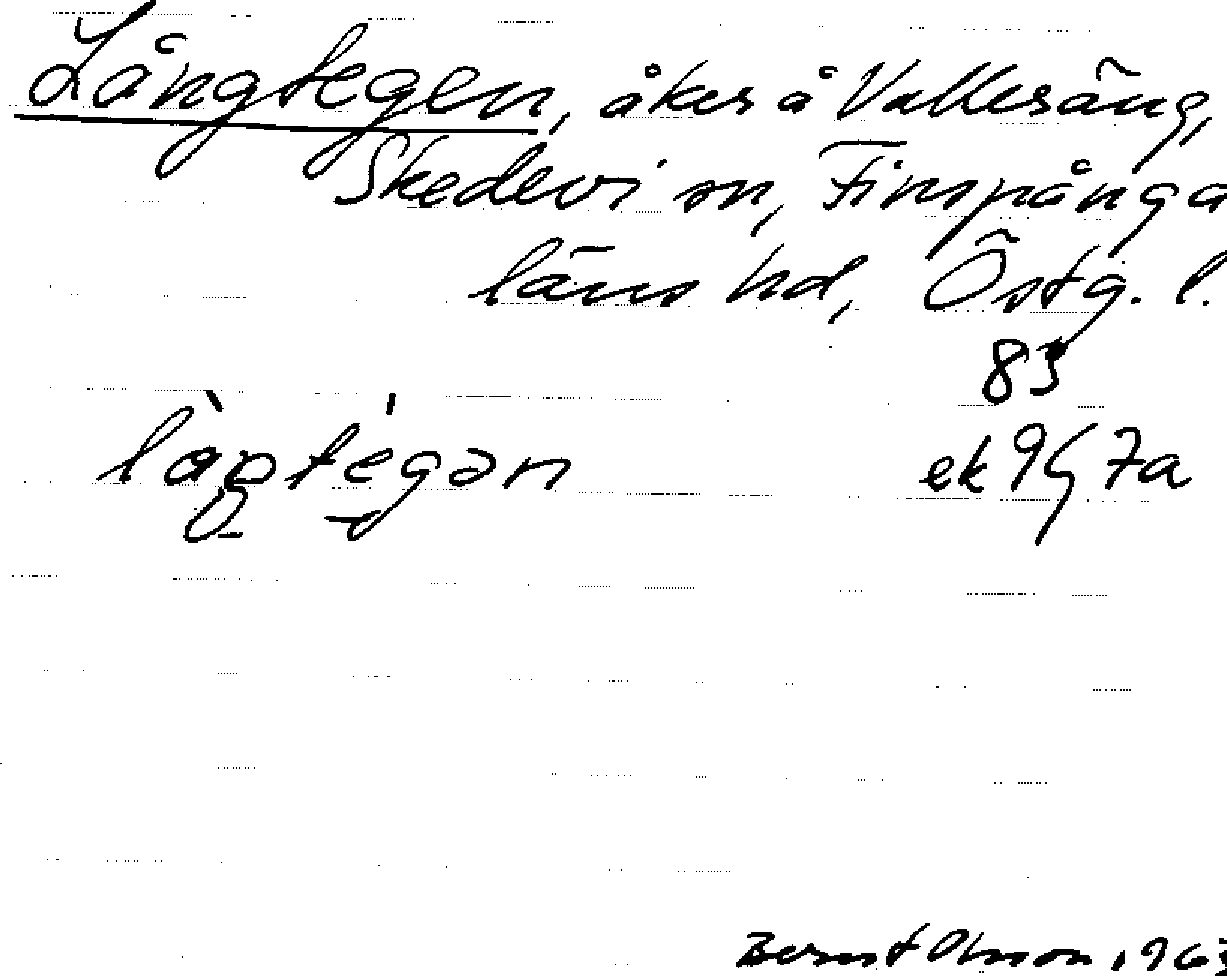 Långtegen, åker å Vallersäng,
Skedevi sn, Finspånga
läns hd, Östg. l.
83
ek 9G 7a
Bernt Olsson, 196